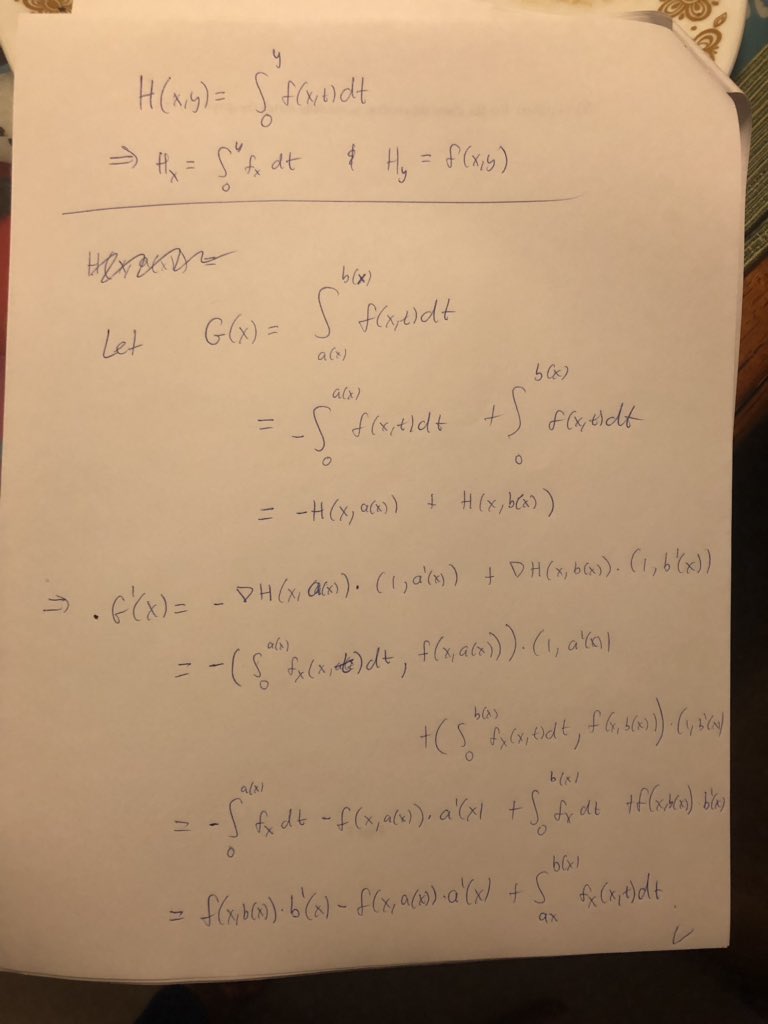 H(x,y) = ∫₀^y f(x,t)dt
⇒ Hₓ = ∫₀^y fₓ dt & H_y = f(x,y)
Let G(x) = ∫_{a(x)}^{b(x)} f(x,t)dt
= -∫₀^{a(x)} f(x,t)dt + ∫₀^{b(x)} f(x,t)dt
= -H(x,a(x)) + H(x,b(x))
⇒ . G'(x) = - ∇H(x,a(x)) · (1,a'(x)) + ∇H(x,b(x)) · (1,b'(x))
= -(∫₀^{a(x)} fₓ(x,t)dt, f(x,a(x))) · (1,a'(x)
+(∫₀^{b(x)} fₓ(x,t)dt, f(x,b(x))) · (1,b'(x)
= -∫₀^{a(x)} fₓ dt - f(x,a(x)) · a'(x) + ∫₀^{b(x)} fₓ dt + f(x,b(x)) · b'(x)
= f(x,b(x)) · b'(x) - f(x,a(x)) · a'(x) + ∫_{ax}^{b(x)} fₓ(x,t)dt.
✓